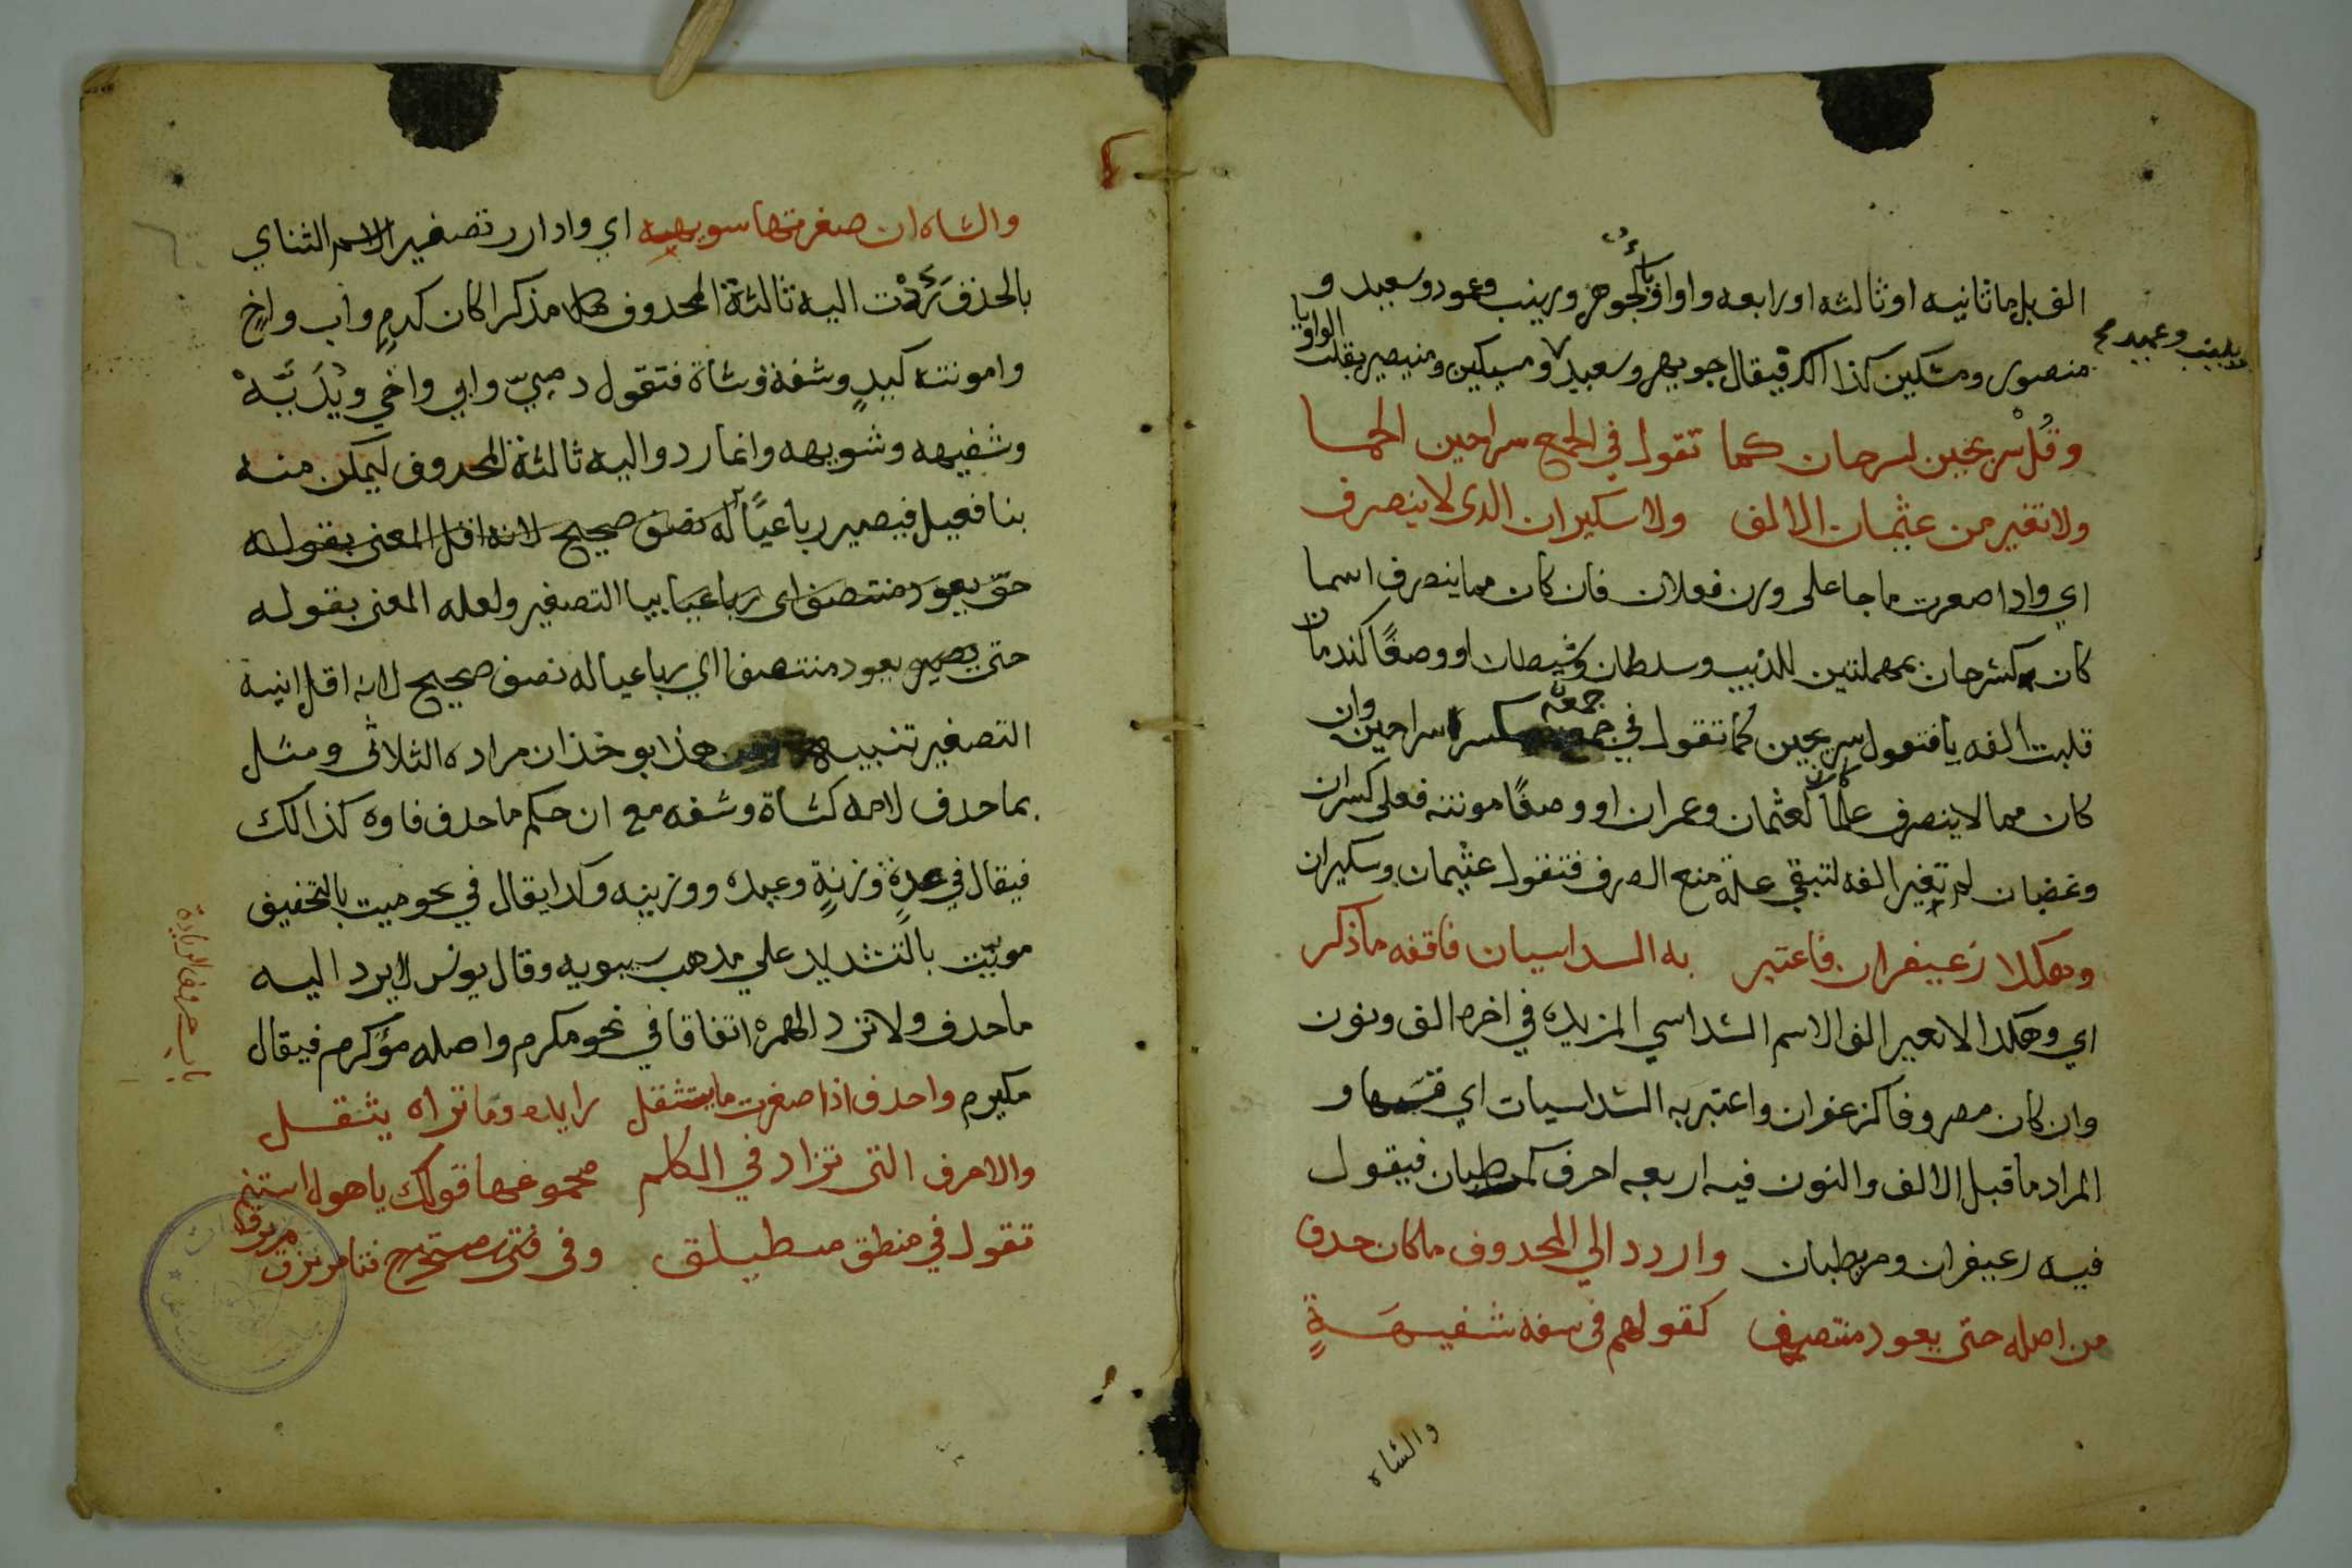 الف بل ما ثانيه او ثالثه او رابعه واو او ياء كجوهر وزينب وعمود وسعيد و
منصور ومسكين كذا الك فيقال جويهر وسعيد ومسيكين ومنيصير بقلب الواو يا
وزيينب وعميد صح
وقُلْ سريحين لسرحان كما تقول في الجمع سراحين الحما
ولا تغير من عثيمان الالف ولا سكيران الذى لا ينصرف
اي واذا صعرت ما جا على وزن فعلان فان كان مما ينصرف اسما
كان كسرحان بمهملتين للذيب وسلطان وشيطان او وصفًا كندمان
قلبت الفه يا فتقول سريحين كما تقول في جمعه سراحين وان
كان مما لا ينصرف علمًا كان كعثمان وعمران او وصفًا مونثه فعلى كسكران
وغضبان لم تغير الفه لتبقي علة منع الصرف فتقول عثيمان وسكيران
وهكذا زعيفران فاعتبر به السداسيان فاقفه ما ذكر
اي وهكذا لا تعير الف الاسم السداسي المزيده في اخره الف ونون
وان كان مصروفا كزعفران واعتبر به السداسيات اي قسها و
المراد ما قبل الالف والنون فيه اربعه احرف كمرطبان فيقول
فيه زعيفران ومريطبان وارددالي المحدوف ما كان حدف
من اصله حتى يعود منتصف كقولهم فى سفه شفيهةٍ
والشاه
والشاه ان صغرتها سويهه اي واذا اردت تصغير الاسم الثناي
بالحذف رَدَدْت اليه ثالثه المحدوف مذكرا كان كدمٍ وأب واخٍ
وامونثه كيدٍ وشفة وشاة فتقول دميّ وابي واخي ويُدَيَّهْ
وشفيهه وشويهه وانما ردوا اليه ثالثه المحدوف ليمكن منه
بنا فعيل فيصير رباعيًا له نصف صحيح لانه اقل المعنى بقوله
حتى يعود منتصف اى رباعيا بيا التصغير ولعله المعنى بقوله
حتى يصير يعود منتصفا اي رباعيا له نصف صحيح لانه اقل ابنية
التصغير تنبيه من هذا يوخذ ان مراده الثلاثى ومثل
بما حدف لامه كشاة وشفه مع ان حكم ما حدف فاوه كذالك
فيقال في عدةٍ وزنةٍ وعيده ووزينه وكدا يقال في نحو ميت بالتخفيف
مويّت بالتشديد علي مدهب سيبويه وقال يونس لا يرد اليه
ما حدف ولا ترد الهمزه اتفاقا في نحو مكرم واصله مؤكرم فيقال
مكيرم واحدف اذا صغرت ما يستثقل زايده وما تراه يثقل
والاحرف التى تزاد في الكلم مجموعها قولك يا هول استنم
تقول في منطلق مطيلق وفى فتى مستخرج فتا مرتزق
مرتزق
باب حروف الزيادة